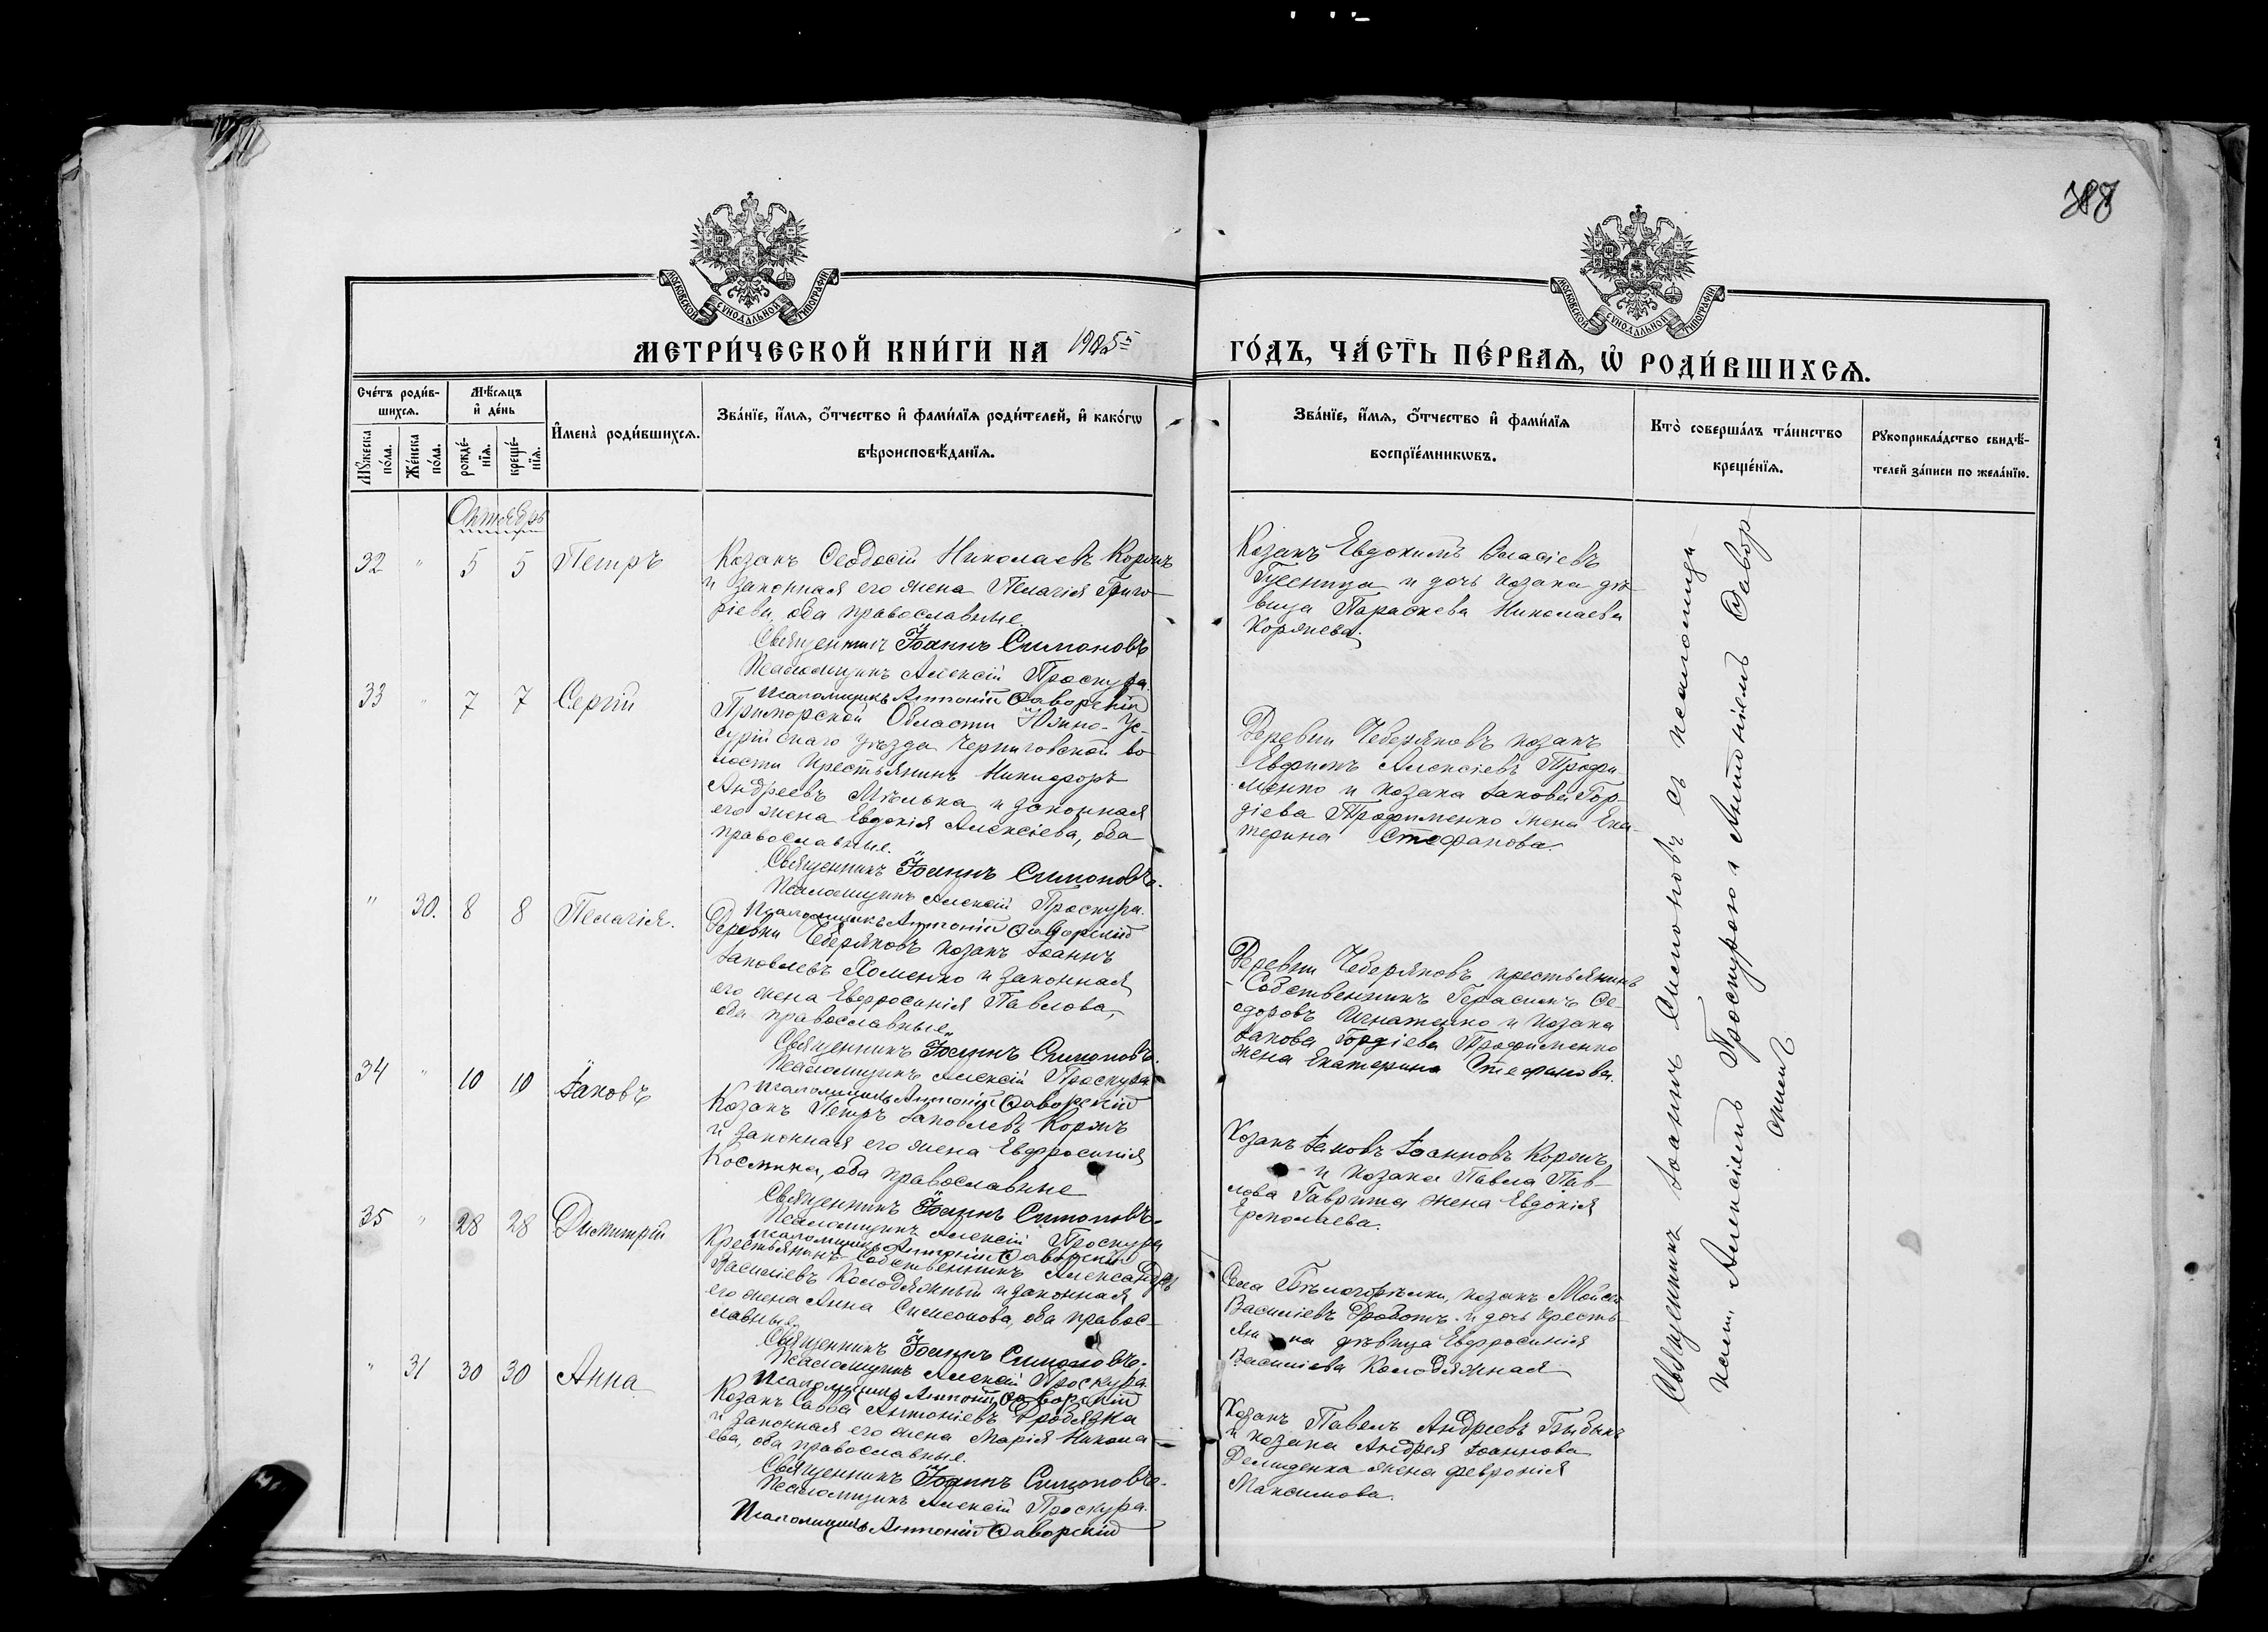 388
МОСКОВСКОЙ СУНОДАЛЬНОЙ ТИПОГРАФІИ
МОСКОВСКОЙ СУНОДАЛЬНОЙ ТИПОГРАФІИ
МЕТРИ́ЧЕСКОЙ КНИ́ГИ НА 1905 ГО́ДЪ, ЧА́СТЬ ПЕ́РВАѦ, Ѡ РОДИ́ВШИХСѦ.
Сче́тъ роди́вшихсѧ.
Мꙋжеска по́ла.
Же́нска по́ла.
Мѣ́сѧцъ и де́нь
рожде́нїѧ.
креще́нїѧ.
И҆мена̀ роди́вшихсѧ.
Зва́нїе, и҆́мѧ, ѻ҆́тчество и҆ фами́лїѧ роди́телей, и҆ како́гѡ
вѣроисповѣ́данїѧ.
Зва́нїе, и҆́мѧ, ѻ҆́тчество и҆ фами́лїѧ
воспрїе́мникѡвъ.
Кто̀ соверша́лъ та́инство
креще́нїѧ.
Рꙋкоприкла́дство свидѣ́-
телей за́писи по жела́нїю.
Октябрь
32 " 5 5 Петръ
Козакъ Ѳеодосій Николаевъ Коржъ
и законная его жена Пелагія Григо-
ріева, оба православные.
Священникъ Іоаннъ Симоновъ
Псаломщикъ Алексій Проскура.
Псаломщикъ Антоній Саворскій
Козакъ Евдокимъ Власіевъ
Гусеница и дочь козака дѣ-
вица Параскева Николаева
Коржева.
33 " 7 7 Сергій
Приморской Области Южно-Ус-
сурійскаго уѣзда Черниговской во-
лости крестьянинъ Никифоръ
Андреевъ и законная
его жена Евдокія Алексіева, оба
православные.
Священникъ Іоаннъ Симоновъ.
Псаломщикъ Алексій Проскура.
Псаломщикъ Антоній Саворскій
Деревни Чеберяковъ козакъ
Евфимъ Алексіевъ Трофи-
менко и козака Іакова Гор-
діева Трофименко жена Ека-
терина Стефанова.
" 30. 8 8 Пелагія.
Деревни Чеберяковъ козакъ Іоаннъ
Іаковлевъ Хоменко и законная
его жена Евфросинія Павлова,
оба православные.
Священникъ Іоаннъ Симоновъ.
Псаломщикъ Алексій Проскура
Псаломщикъ Антоній Саворскій
Деревни Чеберяковъ крестьянинъ
Собственникъ Герасимъ Ѳе-
одоровъ Игнатенко и козака
Іакова Гордіева Трофименко
жена Екатерина Стефанова.
34 " 10 10 Іаковъ
Козакъ Петръ Іаковлевъ Коржъ
и законная его жена Евфросинія
Космина, оба православные
Священникъ Іоаннъ Симоновъ.
Псаломщикъ Алексій Проскура
Псаломщикъ Антоній Саворскій
Козакъ Іаковъ Іоанновъ Коржъ
и козака Павла Пав-
лова Гавриша жена Евдокія
Ермолаева.
35 " 28 28 Димитрій
Крестьянинъ Собственникъ Александръ
Василіевъ Колодяжный и законная
его жена Анна Симеонова, оба правос-
лавные.
Священникъ Іоаннъ Симоновъ.
Псаломщикъ Алексій Проскура.
Псаломщикъ Антоній Саворскій
Села Бѣлогорѣлки, козакъ Моѵсей
Василіевъ Дроботъ и дочь кресть-
янина дѣвица Евфросинія
Василіева Колодяжная
" 31 30 30 Анна
Козакъ Савва Антоніевъ Дробязка
и законная его жена Марія Никола-
ева, оба православные.
Священникъ Іоаннъ Симоновъ.
Псаломщикъ Алексій Проскура.
Псаломщикъ Антоній Саворскій
Козакъ Павелъ Андреевъ Бибикъ
и козака Андрея Іоаннова
Демиденка жена Феврония
Максимова.
Священникъ Іоаннъ Симоновъ съ псаломщи-
ками Алексіемъ Проскурою и Антоніемъ Савор-
скимъ